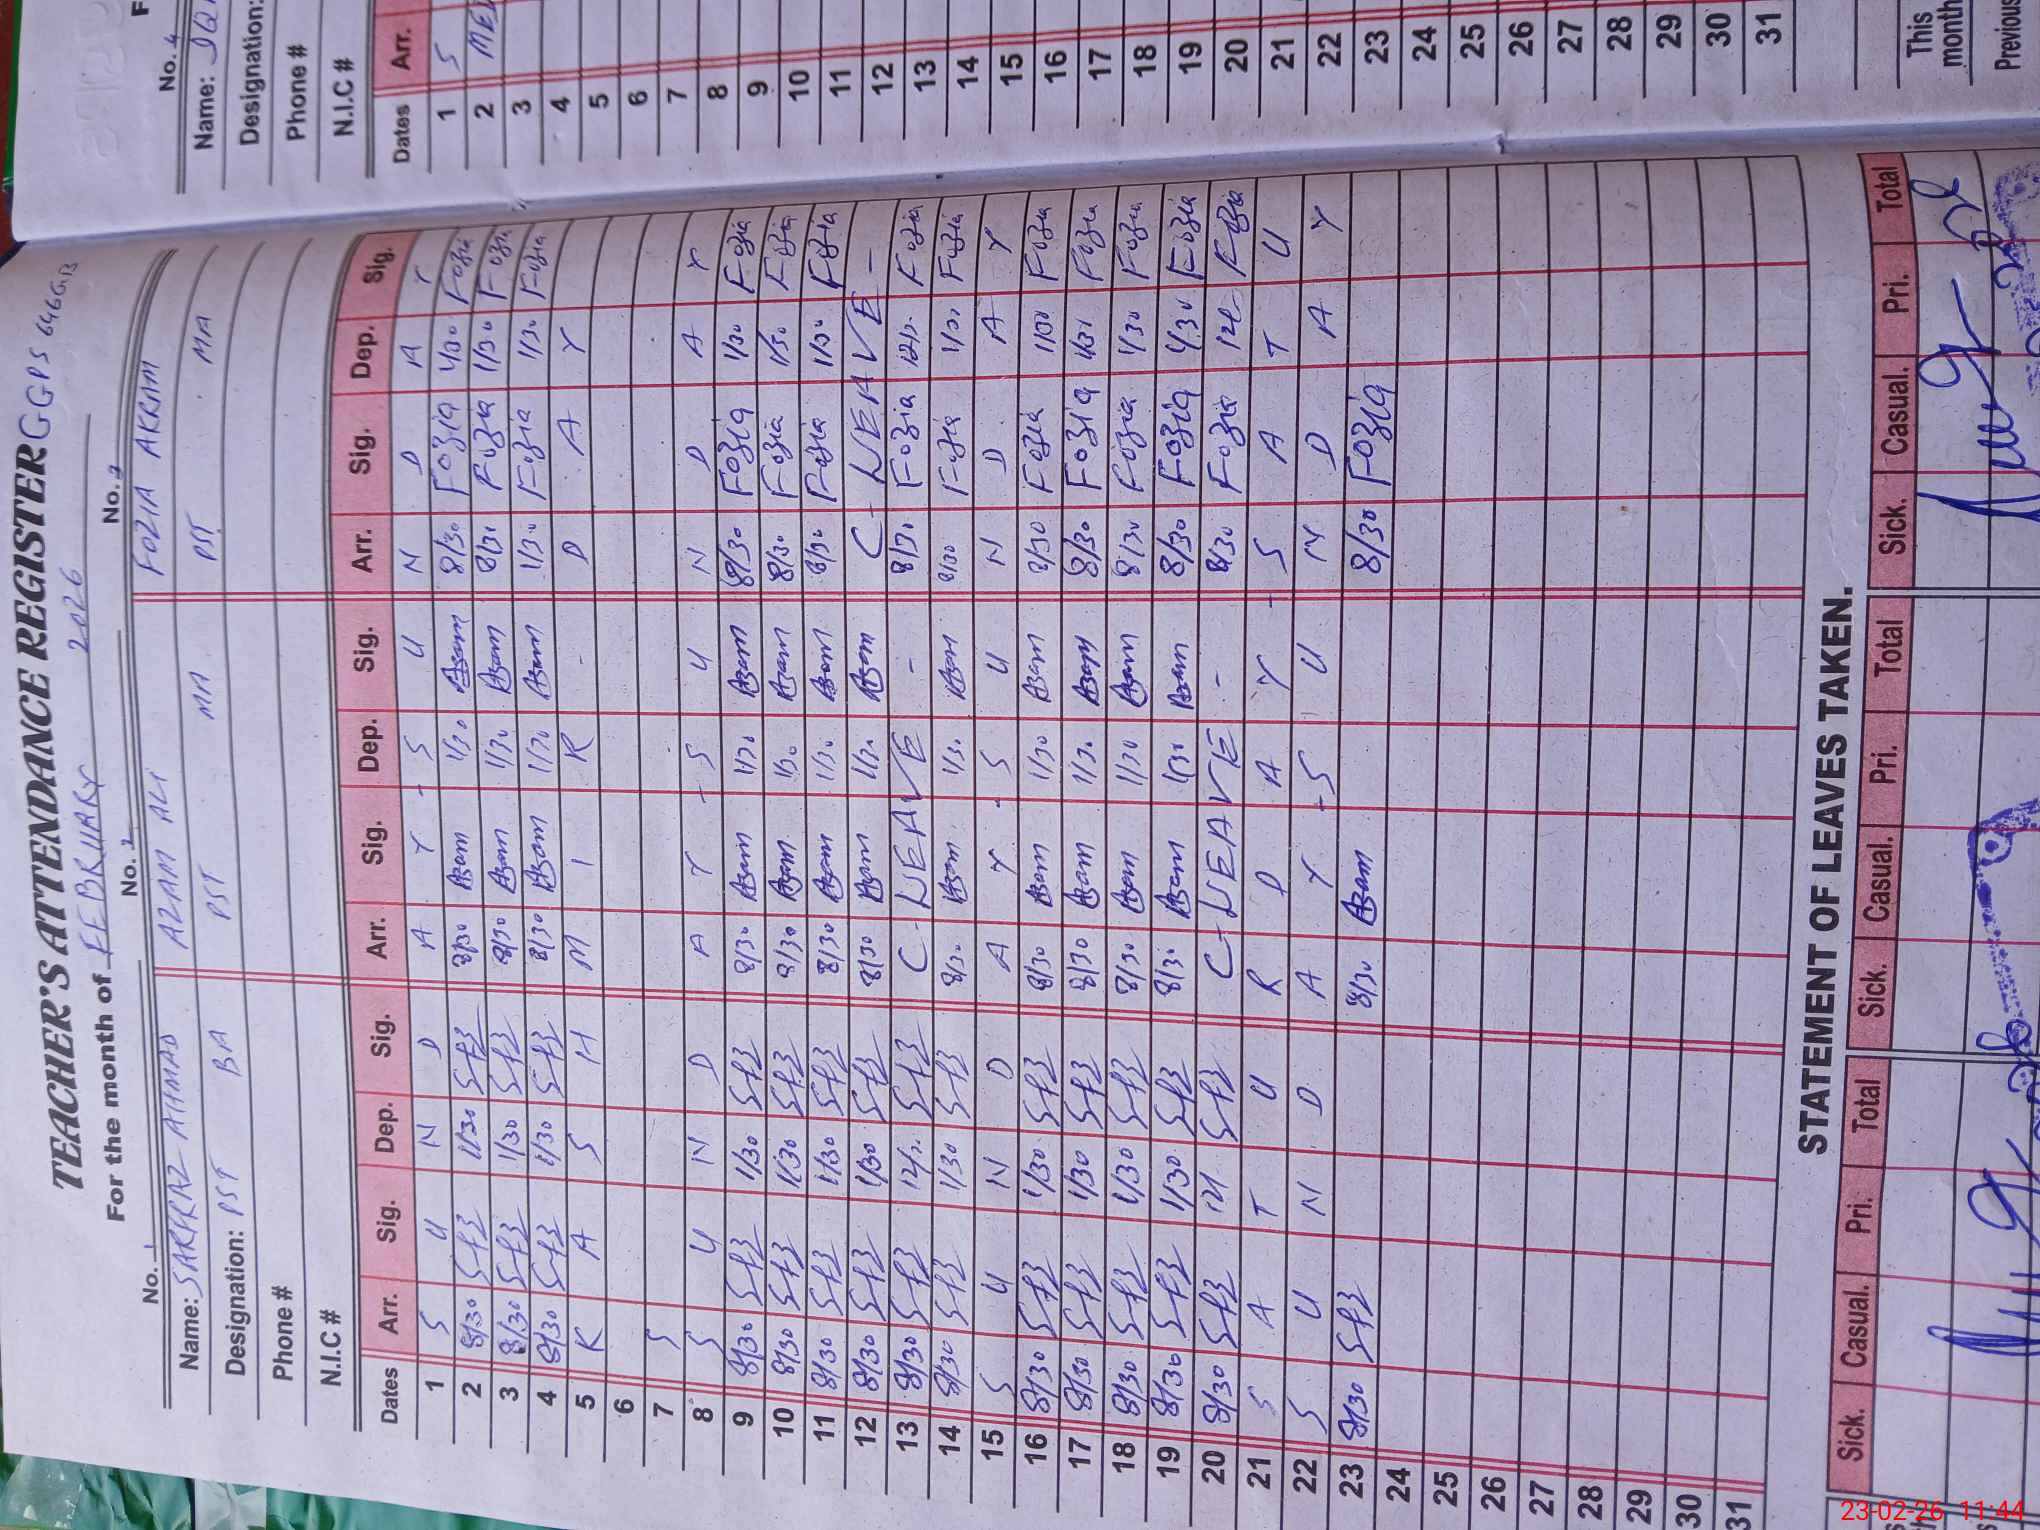 TEACHER'S ATTENDANCE REGISTER GGPS 646GB
For the month of FEBRUARY 2026
No. 1 No. 2 No. 3
Name: SARFRAZ AHMAD AZAM ALI FOZIA AKRIM
Designation: PST BA PST MA PST MA
Phone #
N.I.C #
Dates Arr. Sig. Dep. Sig. Arr. Sig. Dep. Sig. Arr. Sig. Dep. Sig.
1 S U N D A Y - S U N D A Y
2 8/30 1/30 8/30 Azam 1/30 Azam 8/30 Fozia 1/30 Fozia
3 8/30 1/30 8/30 Azam 1/30 Azam 8/30 Fozia 1/30 Fozia
4 8/30 1/30 8/30 Azam 1/30 Azam 1/30 Fozia 1/30 Fozia
5 K A S H M I R - D A Y
6
7 S
8 S U N D A Y - S U N D A Y
9 8/30 1/30 8/30 Azam 1/30 Azam 8/30 Fozia 1/30 Fozia
10 8/30 1/30 8/30 Azam 1/30 Azam 8/30 Fozia 1/30 Fozia
11 8/30 1/30 8/30 Azam 1/30 Azam 8/30 Fozia 1/30 Fozia
12 8/30 1/30 8/30 Azam 1/30 Azam C - LEAVE -
13 8/30 C - LEAVE - 8/30 Fozia Fozia
14 8/30 1/30 8/30 Azam 1/30 Azam 8/30 Fozia 1/30 Fozia
15 S U N D A Y - S U N D A Y
16 8/30 1/30 8/30 Azam 1/30 Azam 8/30 Fozia Fozia
17 8/30 1/30 8/30 Azam 1/30 Azam 8/30 Fozia Fozia
18 8/30 1/30 8/30 Azam 1/30 Azam 8/30 Fozia 1/30 Fozia
19 8/30 1/30 8/30 Azam 1/30 Azam 8/30 Fozia 1/30 Fozia
20 8/30 C - LEAVE - 8/30 Fozia Fozia
21 S A T U R D A Y - S A T U
22 S U N D A Y - S U N D A Y
23 8/30 8/30 Azam 8/30 Fozia
24
25
26
27
28
29
30
31
STATEMENT OF LEAVES TAKEN.
Sick. Casual. Pri. Total Sick. Casual. Pri. Total Sick. Casual. Pri. Total
No. 4
Name:
Designation:
Phone #
N.I.C #
Dates Arr.
1 S
2
3
4
5
6
7
8
9
10
11
12
13
14
15
16
17
18
19
20
21
22
23
24
25
26
27
28
29
30
31
This
month
Previous
23-02-26 11:44